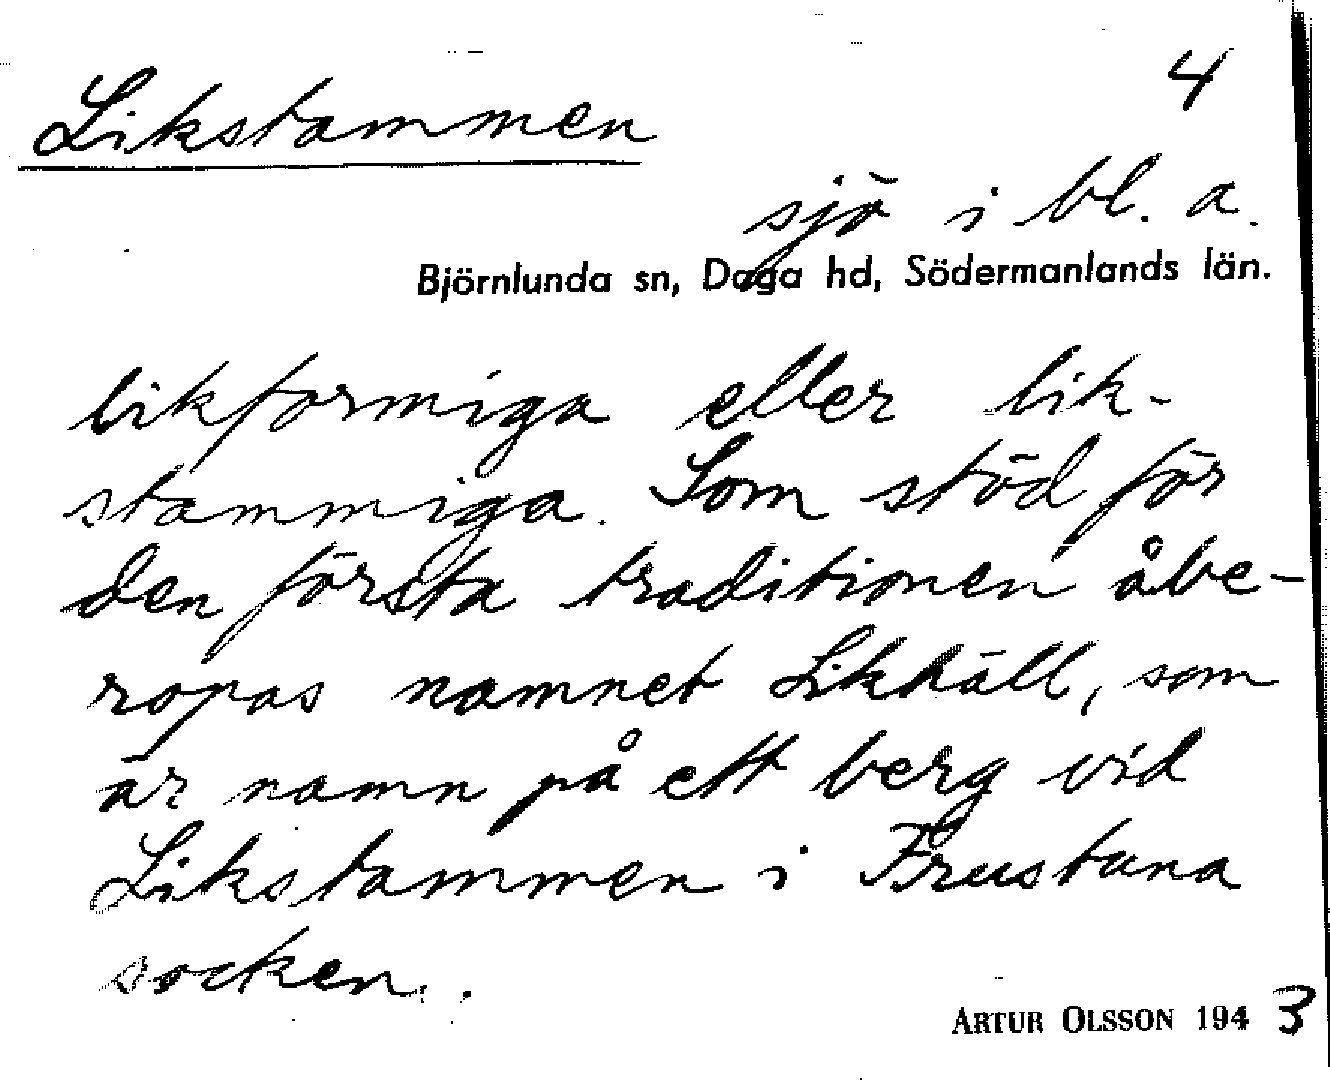 4
Likstammen
sjö i bl. a.
Björnlunda sn, Daga hd, Södermanlands län.
likformiga eller lik-
stammiga. Som stöd för
den första traditionen åbe-
ropas namnet Likhäll, som
är namn på ett berg vid
Likstammen i Frustuna
socken.
ARTUR OLSSON 1943